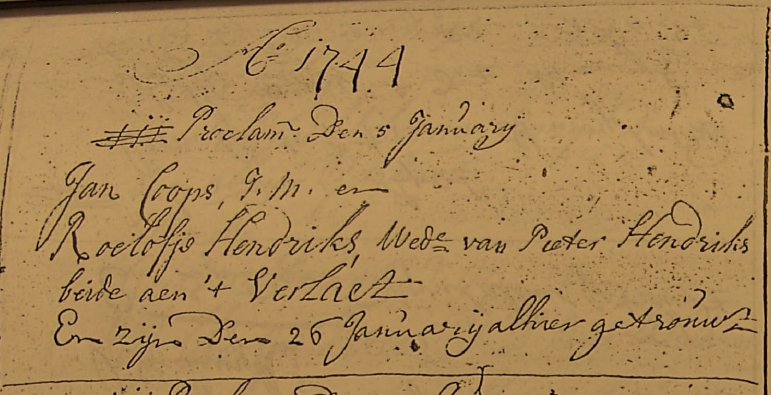 Ao 1744
Proclam. Den 5 January
Jan Coops, J. M. en
Roelofje Hendriks, Wede van Pieter Hendriks
beide aen 't Verlaet
En zijn Den 26 January alhier getrouwt